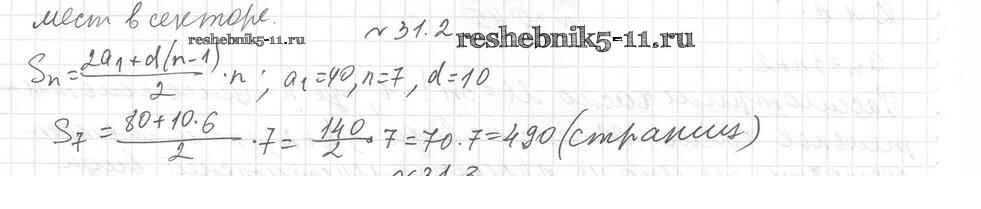 мест в секторе.
№ 31.2
reshebnik5-11.ru reshebnik5-11.ru
Sₙ = (2a₁+d(n-1))/2 · n; a₁=40, n=7, d=10
S₇ = (80+10·6)/2 · 7 = 140/2 · 7 = 70·7 = 490 (страниц)